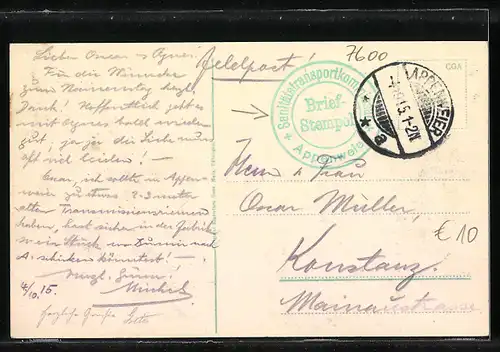 Lieben Oscar u Agnes!
Für die Wünsche
zum Namenstag herzl.
Dank! Hoffentlich geht es
mit Agnes bald wieder
gut, ja ja die Liebe muss
oft viel leiden! —
Oscar, ich sollte in Appen-
weier zu etwa 2-3 meter
alten Transmissionsriemen
haben, hast sicher in der Fabrik
so ein Stück, wo Du mir nach
A. schicken könntest! —
4/10.15.
Michel
Herzliche Grüße
Feldpost!
7600
Sanitätstransportkom
Brief-
Stempel
Appenweier
APPENWEIER
15.1-2N
a
COA
Herrn u Frau
Oscar Müller
Konstanz
Mainaustrasse
€ 10